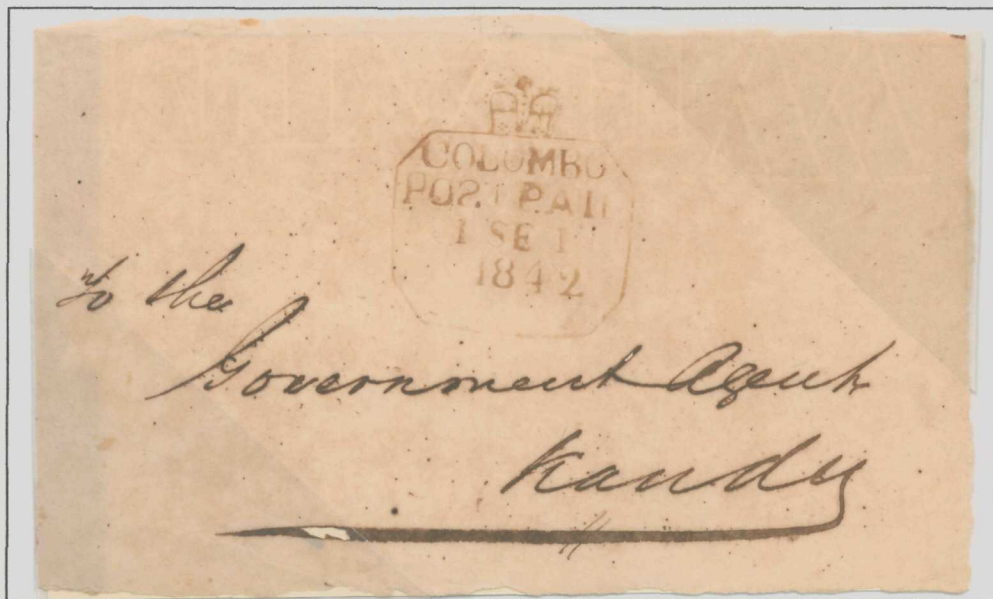 COLOMBO
POST PAID
1 SE 1
1842
To the
Government Agent
Kandy